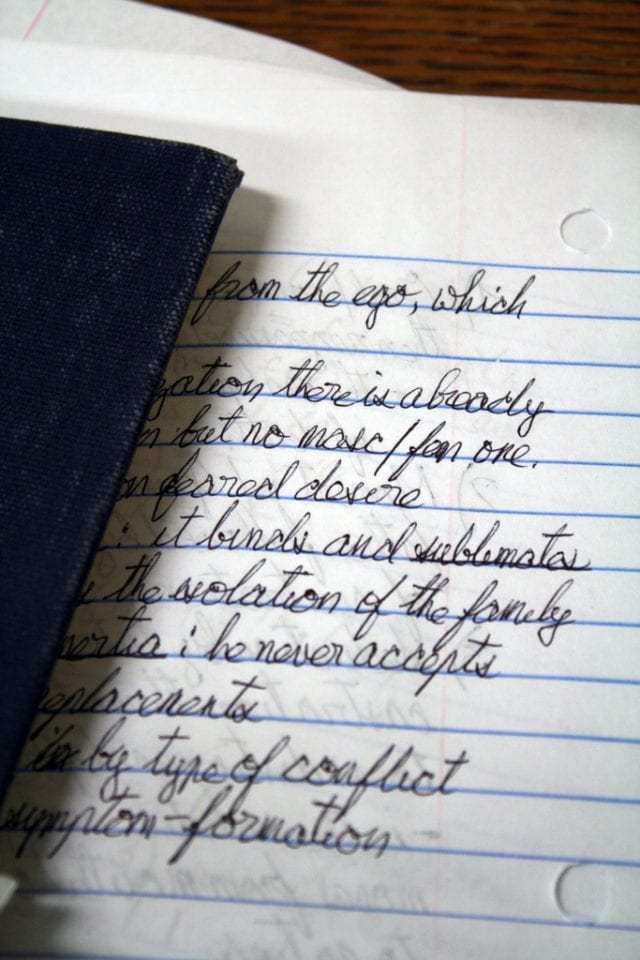 from the ego, which
zation there is already
n but no masc/fem one.
on feared desire
: it binds and sublimates
the isolation of the family
nertia : he never accepts
eplacements
by type of conflict
symptom-formation